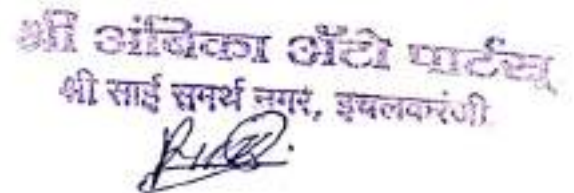 श्री अंबिका ॲटो पार्टस्
श्री साई समर्थ नगर, इचलकरंजी